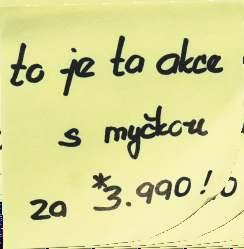 to je ta akce
s myčkou
za *3.990!